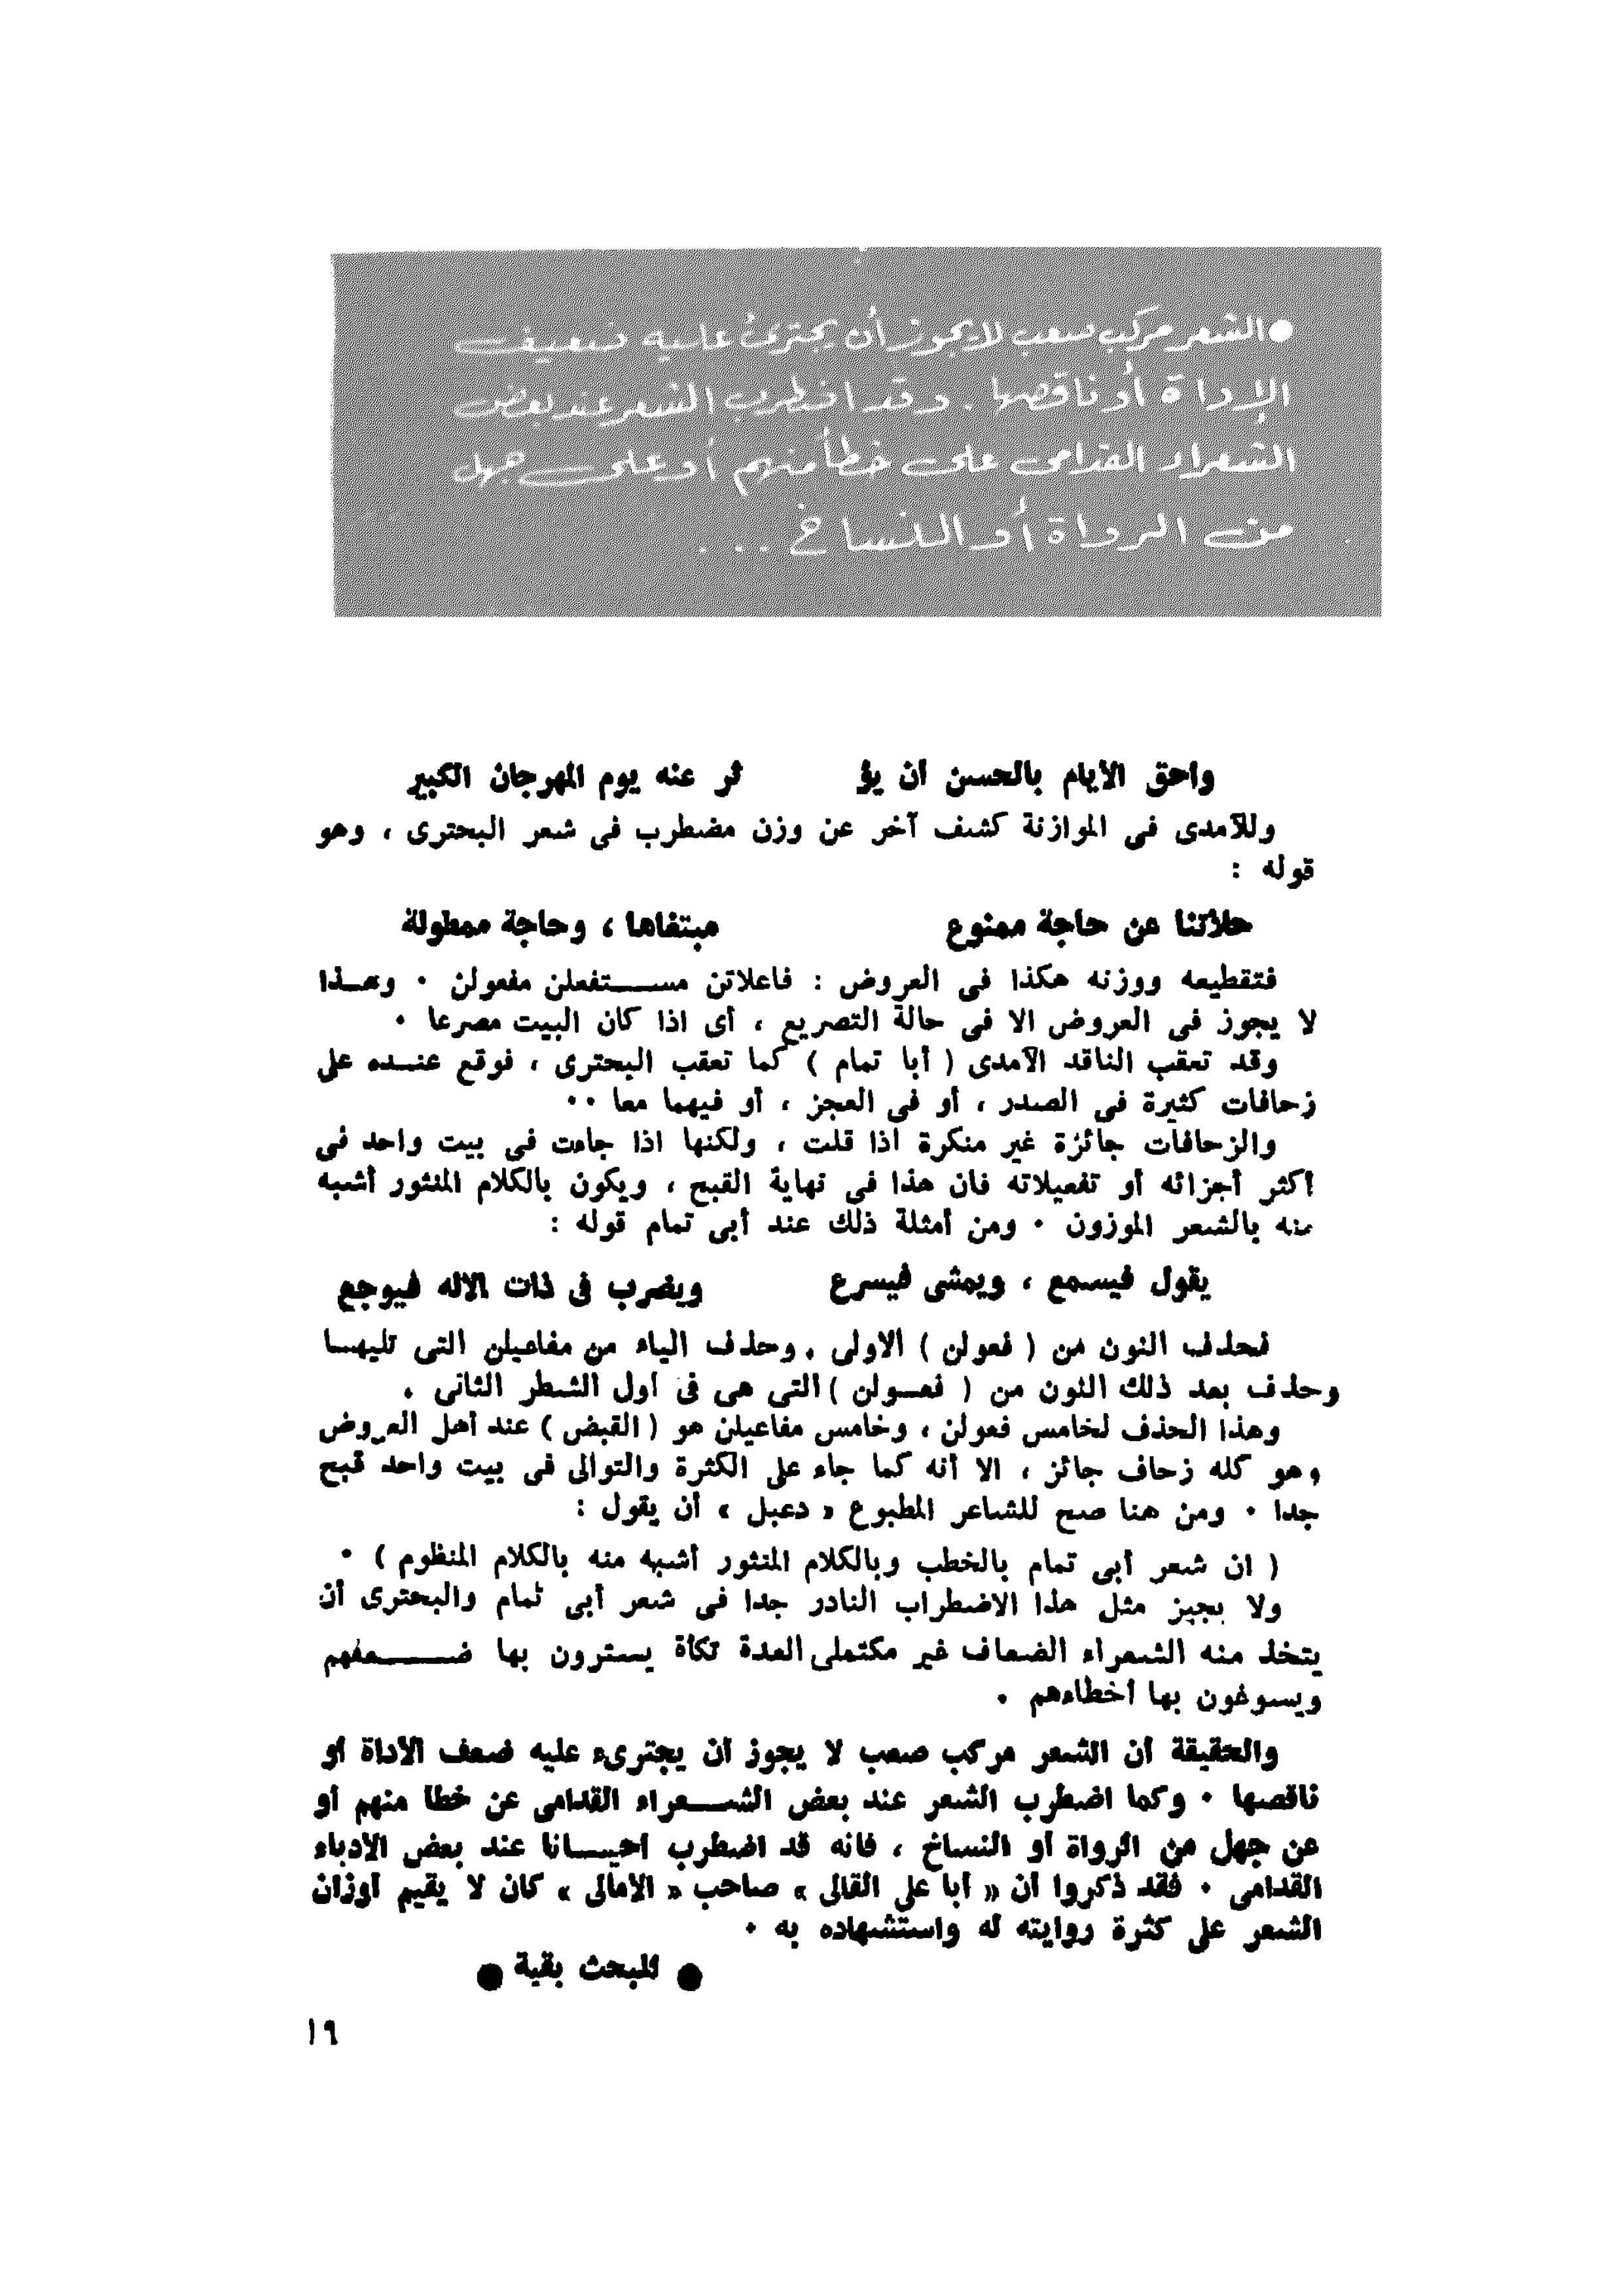 ● الشعر مركب صعب لا يجوز أن يجترئ عليه ضعيف
الإداة أو ناقصها . وقد اضطرب الشعر عند بعض
الشعراء القدامى على خطأ منهم أو على جهل
من الرواة أو النساخ . . .
واحق الأيام بالحسن أن يؤ ثر عنه يوم المهرجان الكبير
وللآمدى فى الموازنة كشف آخر عن وزن مضطرب فى شعر البحترى ، وهو
قوله :
حلأتنا عن حاجة ممنوع مبتغاها ، وحاجة ممطولة
فتقطيعه ووزنه هكذا فى العروض : فاعلاتن مستفعلن مفعولن . وهذا
لا يجوز فى العروض الا فى حالة التصريع ، أى اذا كان البيت مصرعا .
وقد تعقب الناقد الآمدى ( أبا تمام ) كما تعقب البحترى ، فوقع عنده على
زحافات كثيرة فى الصدر ، أو فى العجز ، أو فيهما معا ..
والزحافات جائزة غير منكرة اذا قلت ، ولكنها اذا جاءت فى بيت واحد فى
أكثر أجزائه أو تفعيلاته فان هذا فى نهاية القبح ، ويكون بالكلام المنثور أشبه
منه بالشعر الموزون . ومن أمثلة ذلك عند أبى تمام قوله :
يقول فيسمع ، ويمشى فيسرع ويضرب فى ذات الاله فيوجع
فحذف النون من ( فعولن ) الاولى . وحذف الياء من مفاعيلن التى تليها
وحذف بعد ذلك النون من ( فعولن ) التى هى فى أول الشطر الثانى .
وهذا الحذف لخامس فعولن ، وخامس مفاعيلن هو ( القبض ) عند أهل العروض
وهو كله زحاف جائز ، الا أنه كما جاء على الكثرة والتوالى فى بيت واحد قبح
جدا . ومن هنا صح للشاعر المطبوع « دعبل » أن يقول :
( ان شعر أبى تمام بالخطب وبالكلام المنثور أشبه منه بالكلام المنظوم ) .
ولا يجيز مثل هذا الاضطراب النادر جدا فى شعر أبى تمام والبحترى أن
يتخذ منه الشعراء الضعاف غير مكتملى العدة تكأة يسترون بها ضعفهم
ويسوغون بها أخطاءهم .
والحقيقة أن الشعر مركب صعب لا يجوز أن يجترىء عليه ضعف الأداة أو
ناقصها . وكما اضطرب الشعر عند بعض الشعراء القدامى عن خطأ منهم أو
عن جهل من الرواة أو النساخ ، فانه قد اضطرب احيانا عند بعض الأدباء
القدامى . فقد ذكروا أن « أبا على القالى » صاحب « الأمالى » كان لا يقيم أوزان
الشعر على كثرة روايته له واستشهاده به .
● للبحث بقية ●
١٩